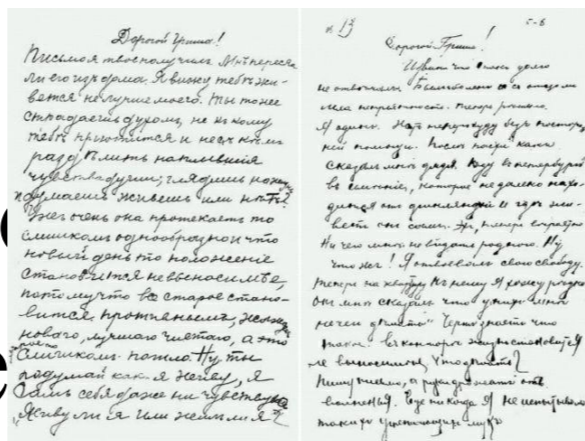 Дорогой Гриша!
Письмо я твое получил. Мнѣ переся-
ли его изъ дома. Я вижу тебѣ жи-
вется не лучше моего. Ты тоже
страдаешь духомъ, не къ кому
тебѣ приютится и не съ кѣмъ
раздѣлить накопившiя
чувства души; глядишь
подумаешь живешь или нѣтъ?
очень она протекаетъ то
слишкомъ однообразно и что
новый день то положенiе
становится невыносимѣе,
потому что все старое стано-
вится противнымъ,
новаго, лучшаго чистаго, а это
слишкомъ пошло. Ну ты
подумай как я живу, я
самъ себя даже не чувствую
"Живу ли я или жилъ ли я?"
N 13
5-6
Дорогой Гриша!
Извини что очень долго
не отвѣчалъ. Было со отцомъ
неприятности. теперь
Я одинъ. Нѣтъ посторон
ней помощи. После
сказалъ мнѣ дядя. Еду въ Петербургъ
въ имѣнiе, которое недалеко нахо-
дится отъ финляндiи и гдѣ жи-
ветъ онъ самъ. Эхъ, теперь
Ни чего мнѣ не видать роднаго. Ну
что же! Я свою свободу.
Теперь на квартиру къ нему Я хожу рѣдко
Он мнѣ сказалъ что у нихъ мнѣ
нечего дѣлать" Чорт знаетъ что
такое. въ конторѣ жизнь становится
не выносимой, Что дѣлать?
Пишу письмо, а рука дрожитъ отъ
волненья. Еще никогда Я не испытывалъ
такихъ угнетающихъ мукъ